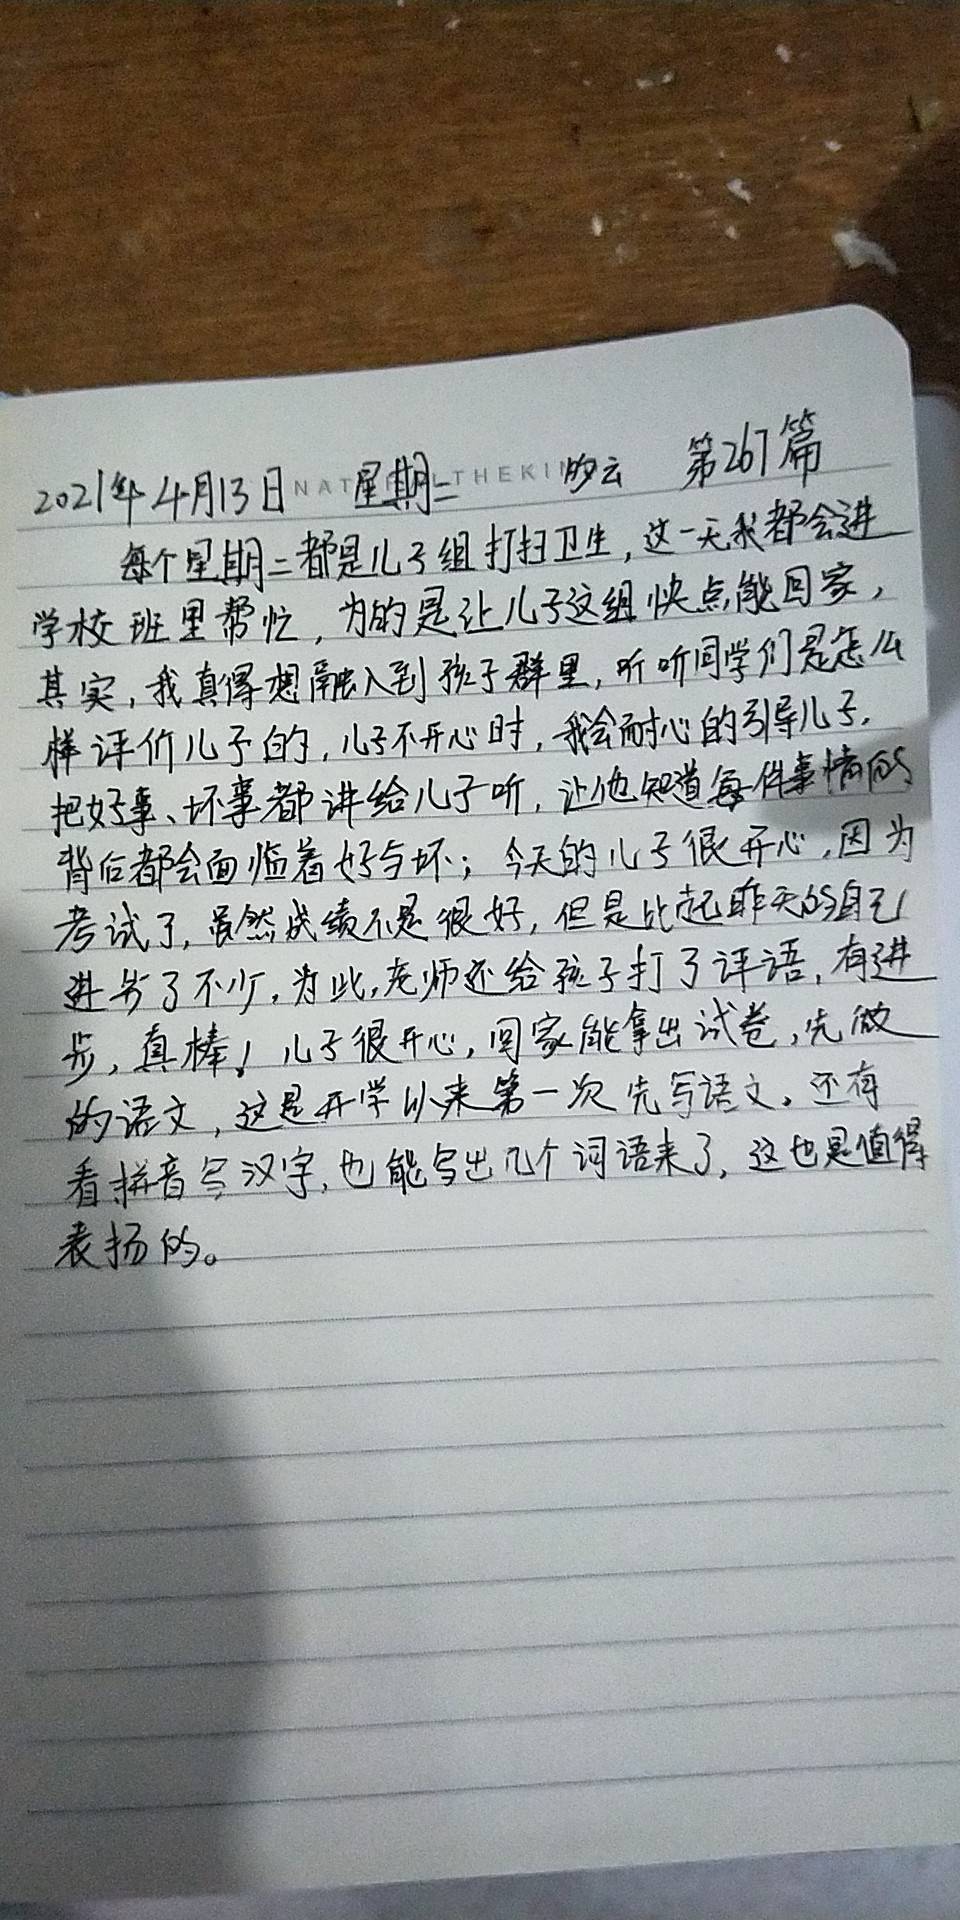 2021年4月13日 星期二 多云 第267篇
每个星期二都是儿子组打扫卫生,这一天我都会进
学校班里帮忙,为的是让儿子这组快点能回家,
其实,我真得想融入到孩子群里,听听同学们是怎么
样评价儿子的,儿子不开心时,我会耐心的引导儿子.
把好事、坏事都讲给儿子听,让他知道每件事情的
背后都会面临着好与坏;今天的儿子很开心,因为
考试了,虽然成绩不是很好,但是比起昨天的自己
进步了不少,为此,老师还给孩子打了评语,有进
步,真棒!儿子很开心,回家能拿出试卷,先做
的语文,这是开学以来第一次先写语文。还有
看拼音写汉字,也能写出几个词语来了,这也是值得
表扬的。